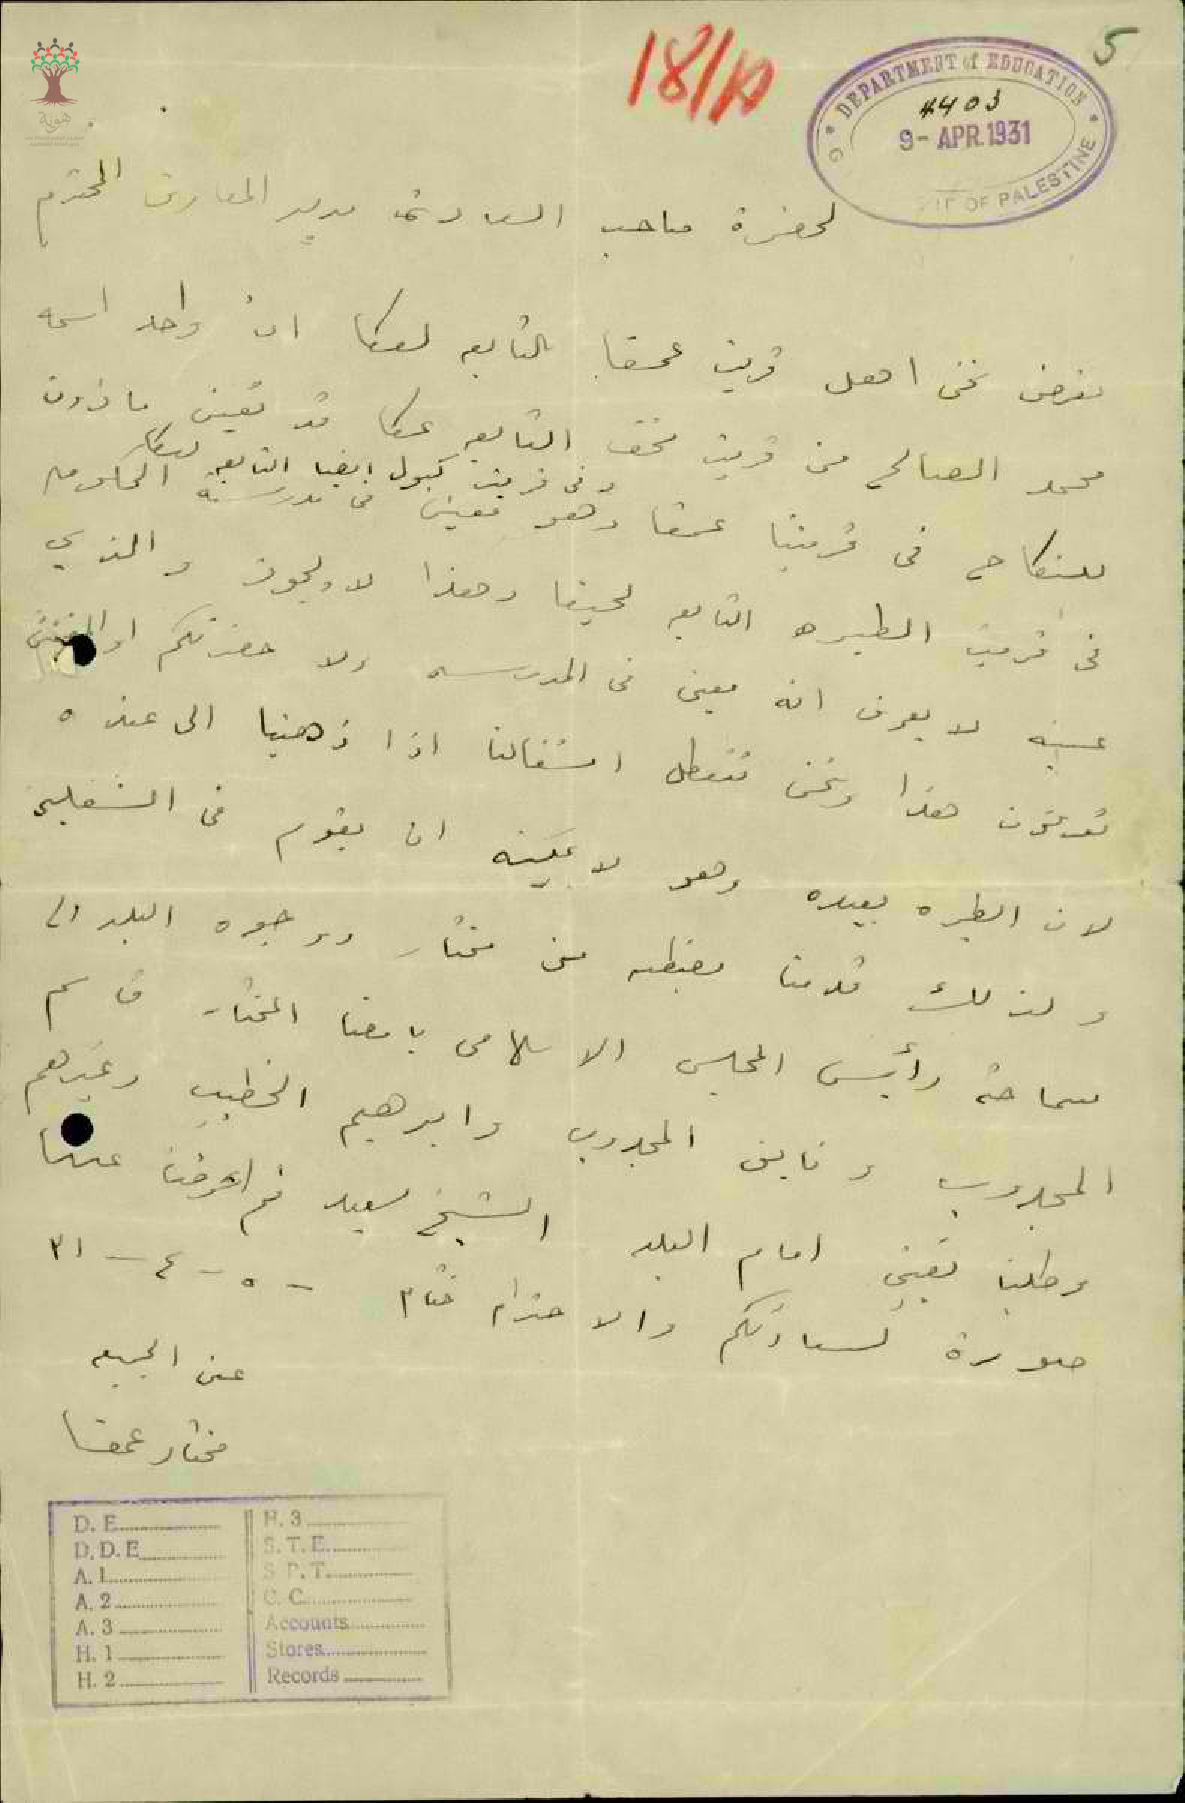 5
18/10
DEPARTMENT of EDUCATION
4403
9- APR. 1931
OF PALESTINE
هوية
لحضرة صاحب السعادة مدير المعارف المحترم
نعرض نحن اهل قرية عمقا التابعه لعكا ان واحد اسمه
محمد الصالح من قرية سخف التابعه عكا قد تعين ماذون
وفي قرية كبول ايضا التابعة لعكا
للنكاح في قريتنا عمقا وهو معين في مدرسة الحكومه
في قرية الطيره التابعه لحيفا وهذا لا يجوز والذي
عينه لا يعرف انه معين في المدرسه ولا حضرتكم او المفتش
تعرفون هذا ونحن تتعطل اشغالنا اذا ذهبنا الى عنده
لان الطيره بعيده وهو لا يمكنه ان يقوم في الشغلين
ولذلك قدمنا مضبطه من مختار ووجوه البلد الى
سماحة رأيس المجلس الاسلامي بامضا المختار قاسم
المجدوب وفايق المجدوب وابرهيم الخطيب وغيرهم
وطلبنا تعيين امام البلد الشيخ سعيد
صورة لسعادتكم والاحترام ختام - ٥ - ٤ - ٣١
عن الجميع
مختار عمقا
D. E.
D. D. E
A. 1
A. 2
A. 3
H. 1
H. 2
H. 3
S. T. E.
S. P. T.
C. C.
Accounts
Stores
Records